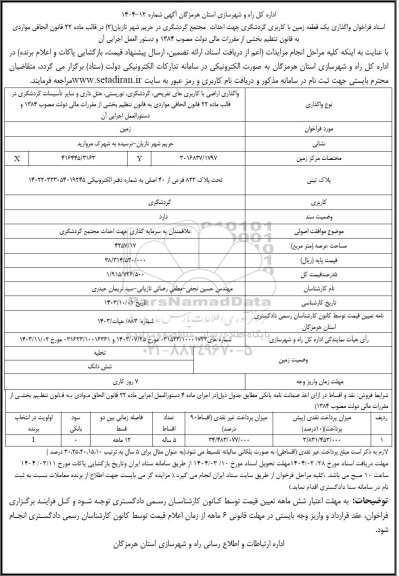 اداره کل راه و شهرسازی استان هرمزگان آگهی شماره ۱۲-۱۴۰۴
اسناد فراخوان واگذاری یک قطعه زمین با کاربری گردشگری جهت احداث مجتمع گردشگری در حریم شهر تازیان(۲) در قالب ماده ۲۲ قانون الحاقی مواردی
به قانون تنظیم بخشی از مقررات مالی دولت مصوب ۱۳۸۴ و دستور العمل اجرایی آن
با عنایت به اینکه کلیه مراحل انجام مزایدات (اعم از دریافت اسناد، ارائه تضمین، ارسال پیشنهاد قیمت، بازگشایی پاکات و اعلام برنده) در
اداره کل راه و شهرسازی استان هرمزگان به صورت الکترونیکی در سامانه تدارکات الکترونیکی دولت (ستاد) برگزار می گردد، متقاضیان
محترم بایستی جهت ثبت نام در سامانه مذکور و دریافت نام کاربری و رمز عبور به سایت www.setadiran.ir مراجعه فرمایند.
نوع واگذاری
واگذاری اراضی با کاربری های تفریحی، گردشگری، توریستی، هتل داری و سایر تأسیسات گردشگری در
قالب ماده ۲۲ قانون الحاقی مواردی به قانون تنظیم بخشی از مقررات مالی دولت مصوب ۱۳۸۴ و
دستورالعمل اجرایی آن
مورد فراخوان
زمین
نشانی
حریم شهر تازیان-نرسیده به شهرک مروارید
مختصات مرکز زمین
۳۰۱۶۸۳۷/۱۷۹۷
Y
۴۱۶۴۴۵/۳۱۶۳
X
پلاک ثبتی
تحت پلاک ۸۲۲ فرعی از ۴۰ اصلی به شماره دفتر الکترونیکی ۱۴۰۲۲۰۳۲۳۰۵۴۰۱۹۲۴۵
کاربری
گردشگری
وضعیت سند
دارد
موضوع موافقت اصولی
علاقمندان به سرمایه گذاری جهت احداث مجتمع گردشگری
مساحت عرصه (متر مربع)
۴۲۵۷/۱۷
قیمت پایه (ریال)
۳۸/۳۱۴/۵۳۰/۰۰۰
۵درصدقیمت کل
۱/۹۱۵/۷۲۶/۵۰۰
نام کارشناسان
مهندس حسین نجفی-مصطفی رضائی تازیانی-سید نریمان حیدری
تاریخ کارشناسی
تاریخ ۱۴۰۳/۱۰/۰۶
نامه تعیین قیمت توسط کانون کارشناسان رسمی دادگستری
استان هرمزگان
شماره ۸۸۳/هیات/۱۴۰۳
رای هیأت نمایندگی اداره کل راه و شهرسازی
وضعیت زمین
تخلیه
شش دانگ
مهلت زمان واریز وجه
۷ روز کاری
شرایط فروش: نقد و اقساط در ازای اخذ ضمانت نامه بانکی مطابق جدول ذیل(در اجرای ماده ۴ دستورالعمل اجرایی ماده ۲۲ قانون الحاق موادی به قانون تنظیم بخشی از
مقررات مالی دولت مصوب ۱۳۸۴)
ردیف
میزان پرداخت نقدی (پیش پرداخت)(۱۰درصد)
میزان پرداخت غیر نقدی (اقساط۹۰ درصد)
تعداد اقساط
فاصله زمانی بین دو قسط
سود بانکی
اولویت در انتخاب برنده
۱
۳/۸۳۱/۴۵۳/۰۰۰
۳۴/۴۸۳/۰۷۷/۰۰۰
۵ ساله
۱۲ ماهه
۰
1
لازم به ذکر است مبلغ پرداخت غیر نقدی (اقساطی) به صورت پلکانی سالیانه تقسیط می شود(به عنوان مثال برای ۵ سال به ترتیب ۱۰،۱۵،۲۰،۲۵،۳۰ درصد )
مهلت دریافت اسناد مورخ ۱۴۰۴/۰۲/۲۸ مهلت تحویل اسناد مورخ ۱۴۰۴/۰۳/۱۰ از طریق سامانه ستاد ایران وتاریخ بازگشایی پاکات مورخ ۱۴۰۴/۰۳/۱۱
توضیحات: به مهلت اعتبار شش ماهه تعیین قیمت توسط کانون کارشناسان رسمی دادگستری توجه شود و کل فرایند برگزاری
فراخوان، عقد قرارداد و واریز وجه بایستی در مهلت قانونی ۶ ماهه از زمان اعلام قیمت توسط کانون کارشناسان رسمی دادگستری انجام
شود.
اداره ارتباطات و اطلاع رسانی راه و شهرسازی استان هرمزگان